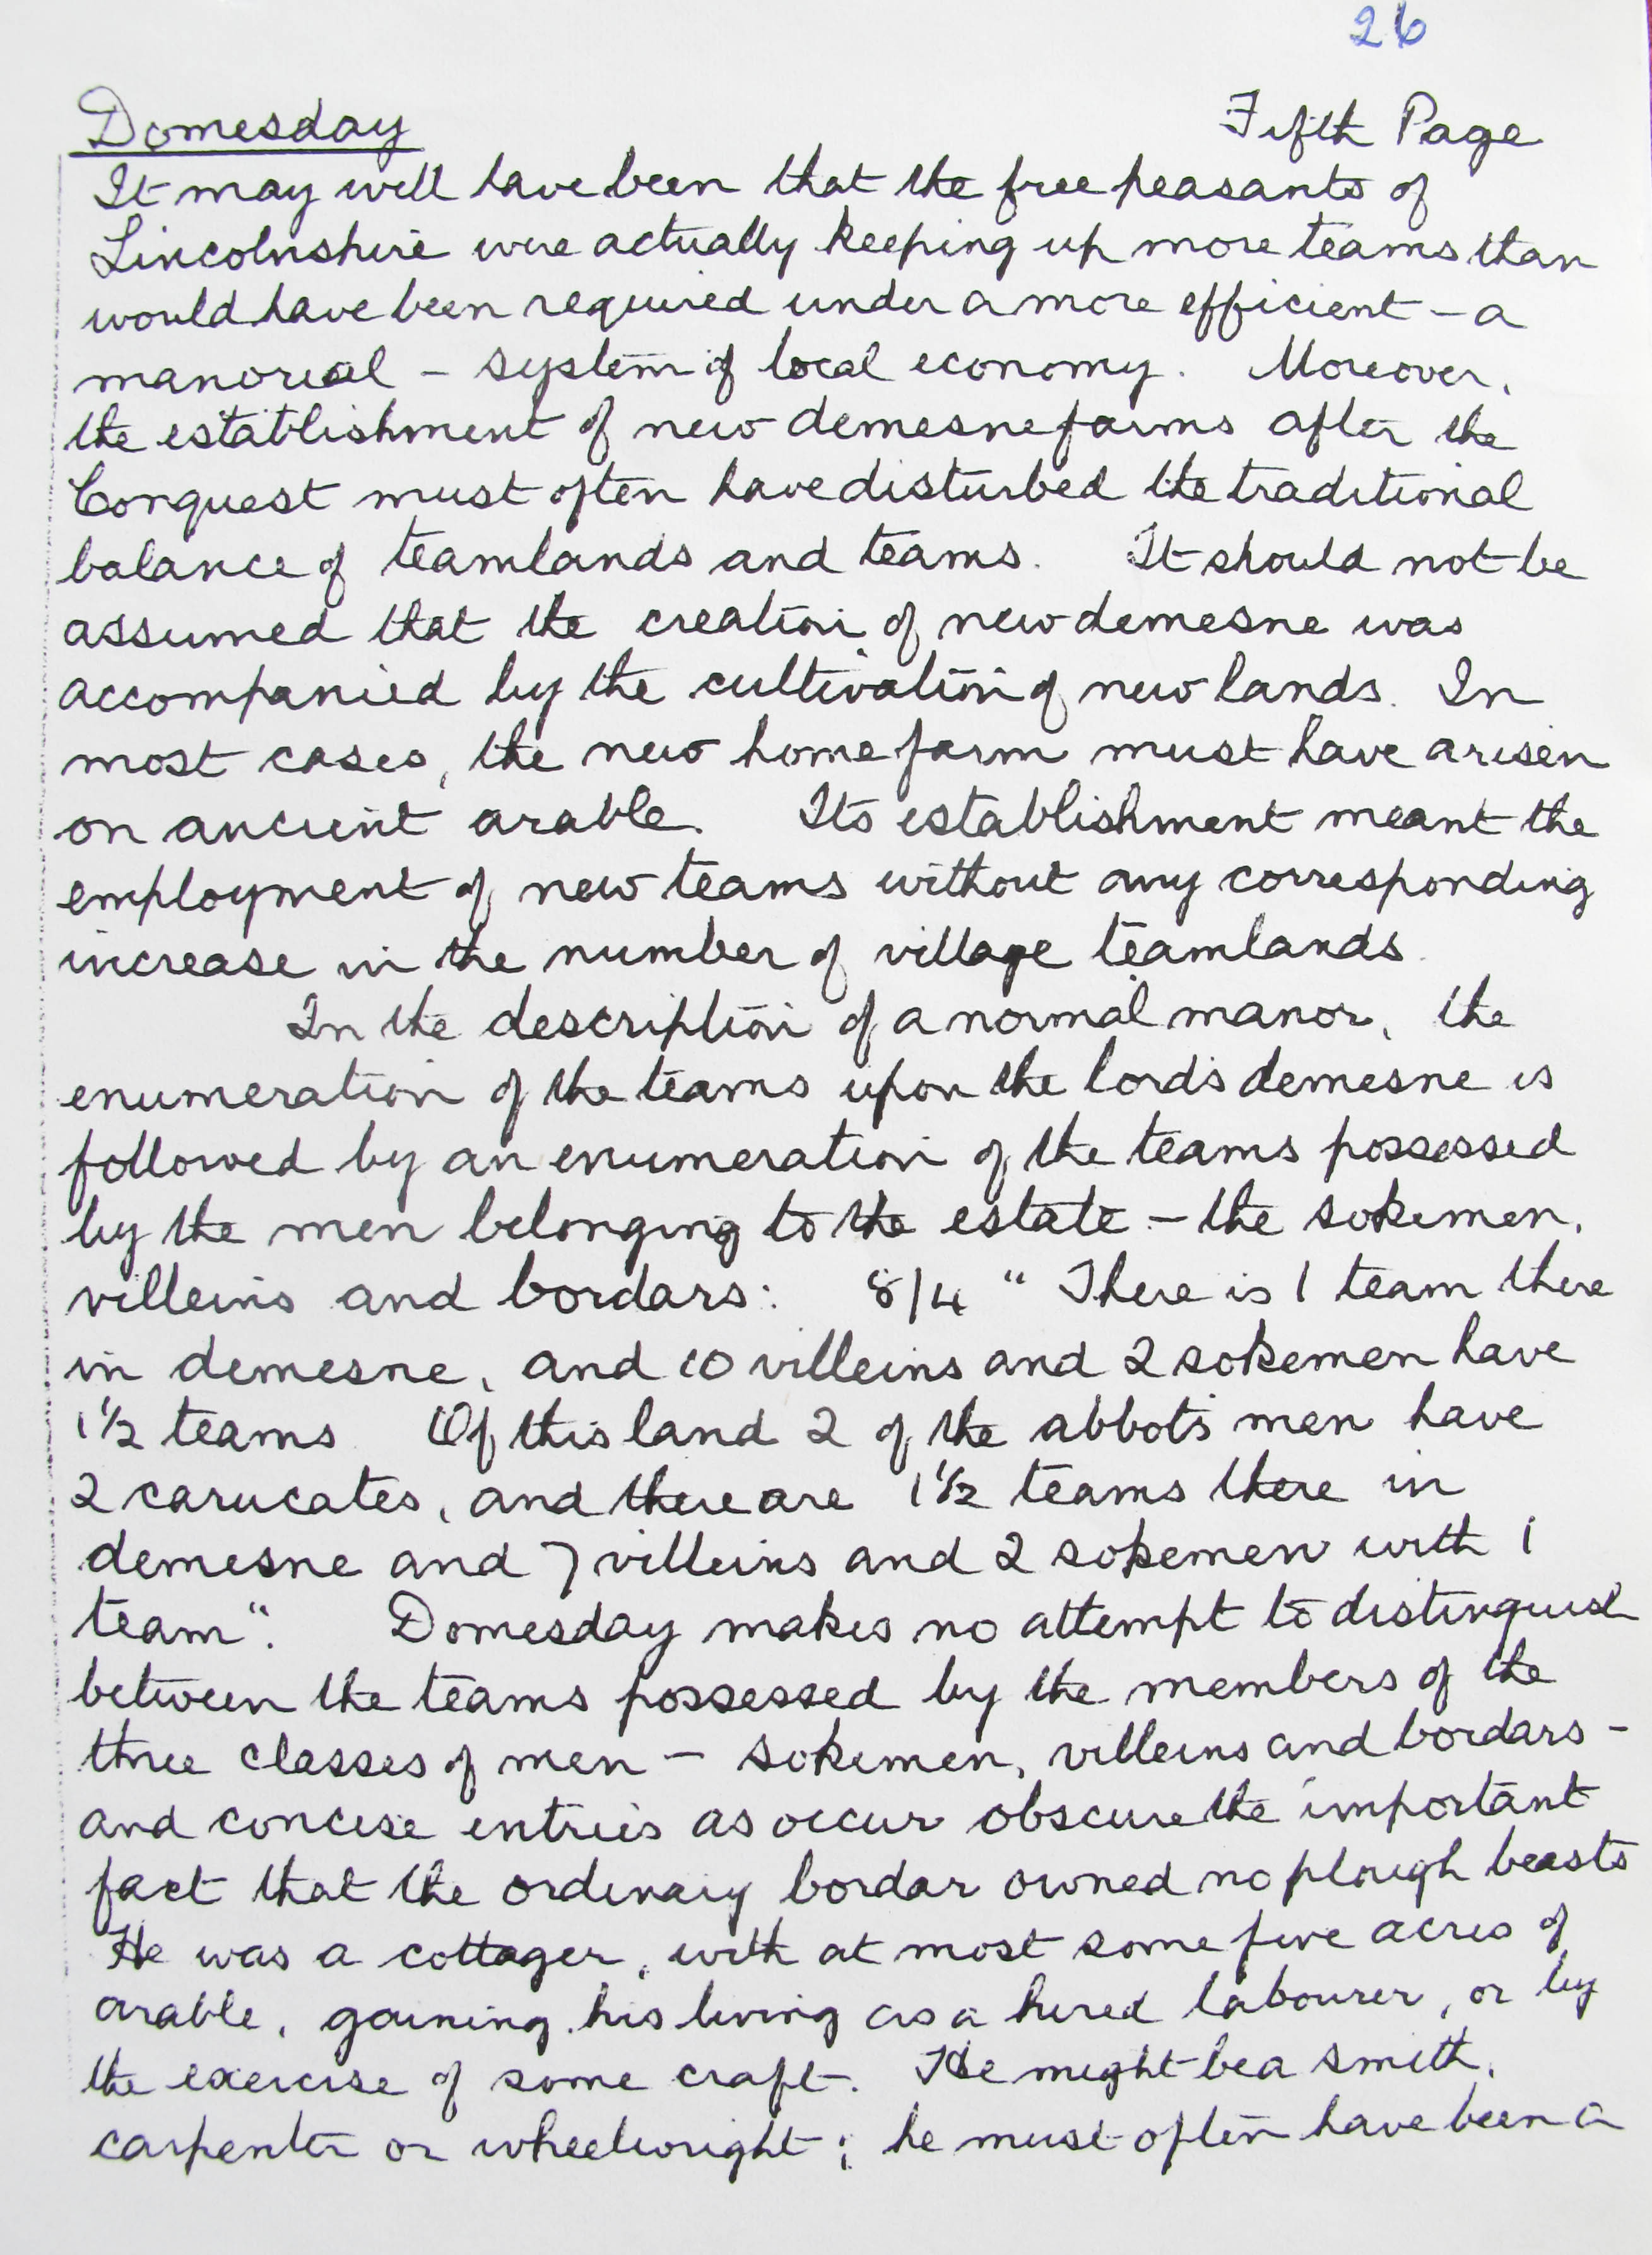 26
Domesday Fifth Page
It may well have been that the free peasants of
Lincolnshire were actually keeping up more teams than
would have been required under a more efficient - a
manorial - system of local economy. Moreover,
the establishment of new demesne farms after the
Conquest must often have disturbed the traditional
balance of teamlands and teams. It should not be
assumed that the creation of new demesne was
accompanied by the cultivation of new lands. In
most cases, the new home farm must have arisen
on ancient arable. Its establishment meant the
employment of new teams without any corresponding
increase in the number of village teamlands.
In the description of a normal manor, the
enumeration of the teams upon the lord's demesne is
followed by an enumeration of the teams possessed
by the men belonging to the estate - the sokemen,
villeins and bordars: 8/4 "There is 1 team there
in demesne, and 10 villeins and 2 sokemen have
1½ teams. Of this land 2 of the abbot's men have
2 carucates, and there are 1½ teams there in
demesne and 7 villeins and 2 sokemen with 1
team". Domesday makes no attempt to distinguish
between the teams possessed by the members of the
three classes of men - sokemen, villeins and bordars -
and concise entries as occur obscure the important
fact that the ordinary bordar owned no plough beasts
He was a cottager, with at most some five acres of
arable, gaining his living as a hired labourer, or by
the exercise of some craft. He might be a smith,
carpenter or wheelwright; he must often have been a